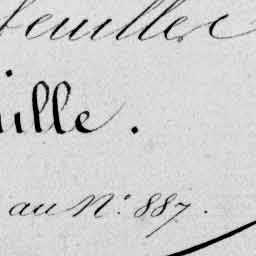 feuilles
ille.
au N°. 887.